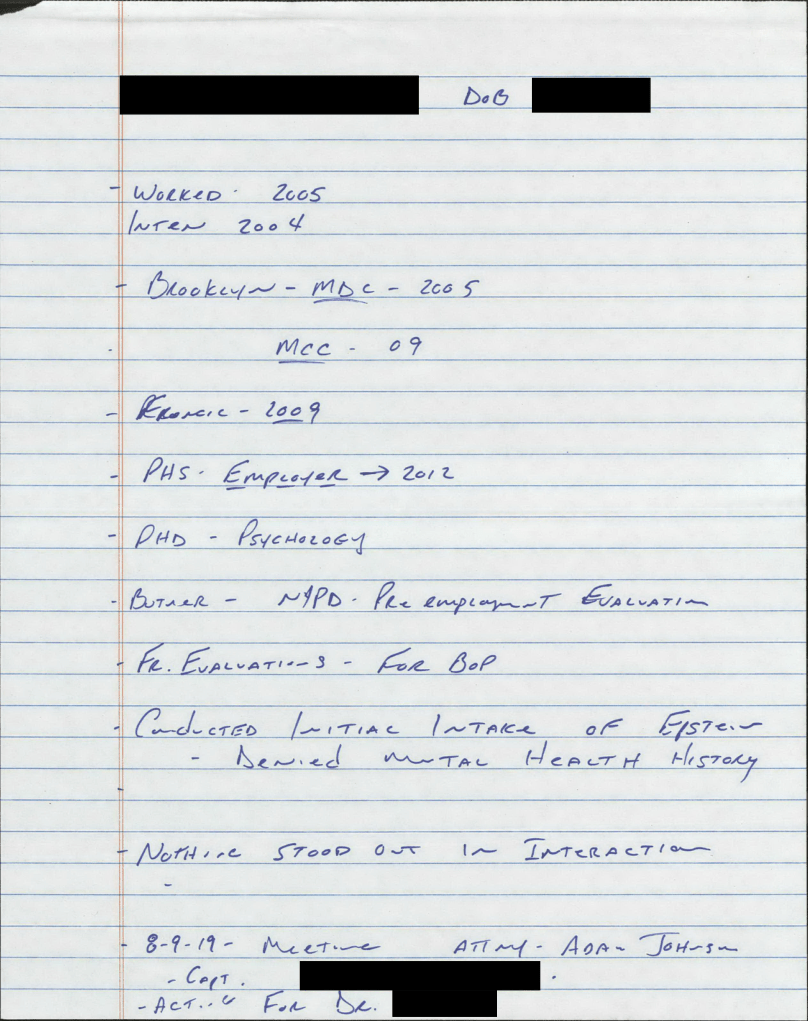 DOB
- WORKED - 2005
INTERN 2004
- BROOKLYN - MDC - 2005
MCC - 09
- 2009
- PHS - EMPLOYER → 2012
- PHD - PSYCHOLOGY
- BUTNER - NYPD - Pre employment EVALUATION
- FR. EVALUATIONS - FOR BOP
- CONDUCTED INITIAL INTAKE OF EPSTEIN
- DENIED MENTAL HEALTH HISTORY
-
- NOTHING STOOD OUT IN INTERACTION
-
- 8-9-19 - MEETING ATTNY - ADAM JOHNSON
- CAPT.
- ACTING FOR DR.